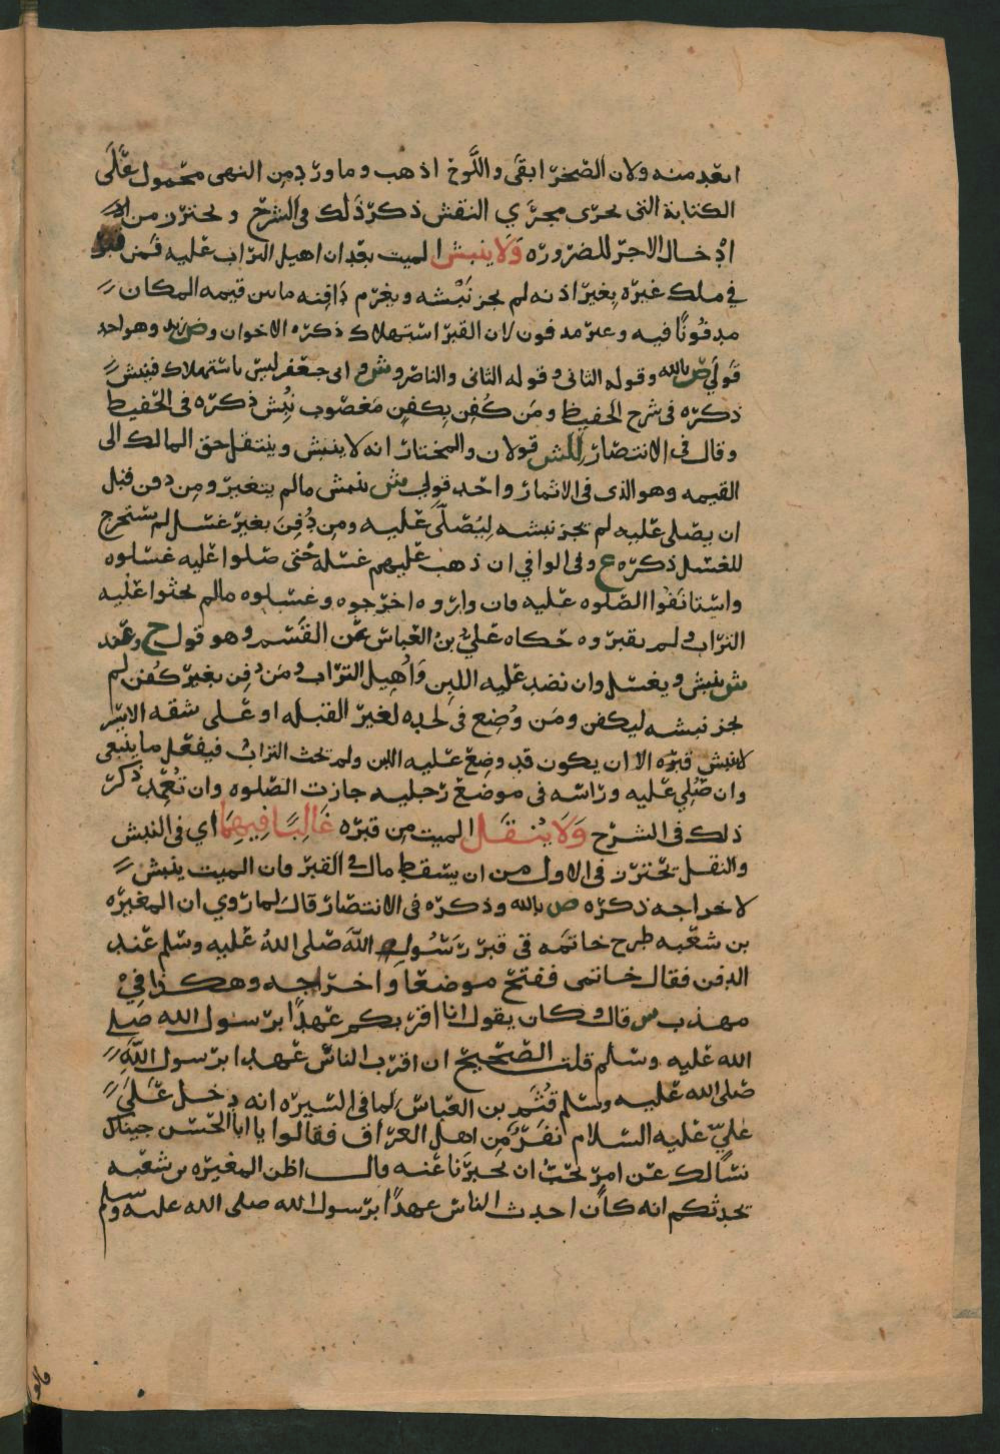 ابعد منه ولان الصخر ابقى واللوح اذهب وما ورد من النهى محمول على
الكتابة التى تجرى مجرى النقش ذكر ذلك فى الشرح ويحترز من
ادخال الاجر للضروره ولا ينبش الميت بعد ان اهيل التراب عليه فمن قبر
في ملك غيره بغير اذنه لم يجز نبشه ويغرم دافنه مابين قيمه المكان
مدفونًا فيه وغير مدفون لان القبر استهلاك ذكره الاخوان وض زيد وهو احد
قولي ص بالله وقوله الثانى وقوله الثانى والناصر وش و ابى جعفر ليس باستهلاك فينبش
ذكره فى شرح الحفيظ ومن كُفِن بكفن مغصوب نُبِش ذكره فى الحفيظ
وقال فى الانتصار للش قولان والمختار انه لا ينبش وينتقل حق المالك الى
القيمه وهو الذى فى الاثمار واحد قولي ش ينبش مالم يتغير ومن دفن قبل
ان يصلى عليه لم يجز نبشه ليُصَلَّى عليه ومن دُفِنَ بغير غسل لم يستخرج
للغسل ذكره ع وفى الوافي ان ذهب عليهم غسله حتى صلوا عليه غسلوه
واستانفوا الصلوه عليه فان واروه اخرجوه وغسلوه مالم يحثوا عليه
التراب ولم يقبروه حكاه علي بن العباس عن القسم وهو قول ح وعند
ش ينبش ويغسل وان نضد عليه اللبن واُهِيل التراب ومن دفن بغير كفن لم
يجز نبشه ليكفن ومن وُضِع فى لحده لغير القبله او على شقه الايسر
لا ينبش قبره الا ان يكون قد وضع عليه اللبن ولم يحث التراب فيفعل ما ينبغى
وان صُلِي عليه وراسه فى موضع رجليه جازت الصلوه وان تُعُمِّد ذكر
ذلك فى الشرح ولا ينقل الميت من قبره غالبًا فيهما اي فى النبش
والنقل تحترز فى الاول من ان يسقط مال فى القبر فان الميت ينبش
لاخراجه ذكره ص بالله وذكره فى الانتصار قال لما روي ان المغيره
بن شعبه طرح خاتمه فى قبر رسول الله صلى الله عليه وسلم عند
الدفن فقال خاتمى ففتح موضعا واخرجه وهكذا فِيْ
مهذب ش قال وكان يقول انا اقربكم عهدًا برسول الله صلى
الله عليه وسلم قلت الصحيح ان اقرب الناس عهدا برسول الله
صلى الله عليه وسلم قُثَم بن العباس لما فى السيره انه دخل على
عليّ عليه السلام نفر من اهل العراق فقالوا يا ابا الحسن جيناك
نسالك عن امر نحب ان تخبرنا عنه قال اظن المغيره بن شعبه
يحدثكم انه كان احدث الناس عهدًا برسول الله صلى الله عليه وسلم
قالوا